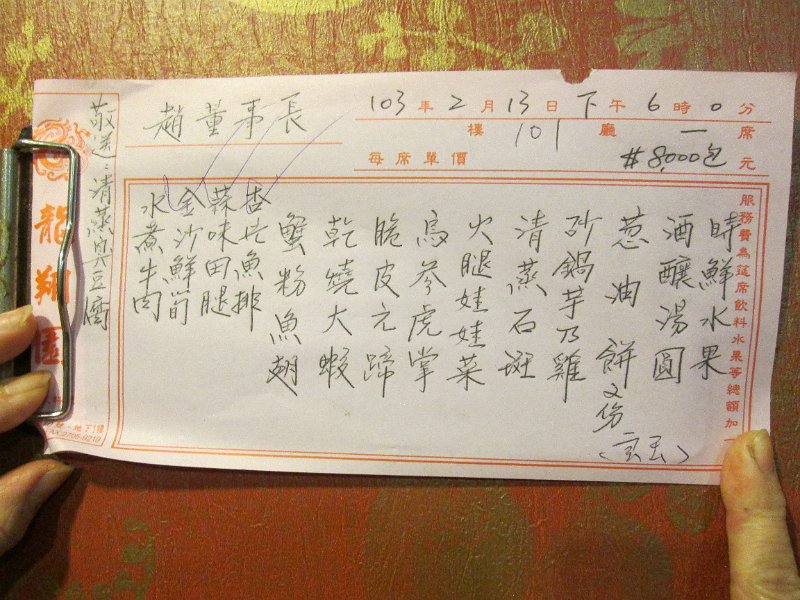 趙董事長
103年2月13日下午6時0分
樓101廳一席
每席單價#8,000包元
服務費為筵席飲料水果等總額加一
時鮮水果
酒釀湯圓
蔥油餅2份
砂鍋芋艿雞
清蒸石斑
火腿娃娃菜
烏參虎掌
脆皮元蹄
乾燒大蝦
蟹粉魚翅
杏片魚排
蒜味田腿
金沙鮮筍
水煮牛肉
敬送：清蒸臭豆腐
龍翔園